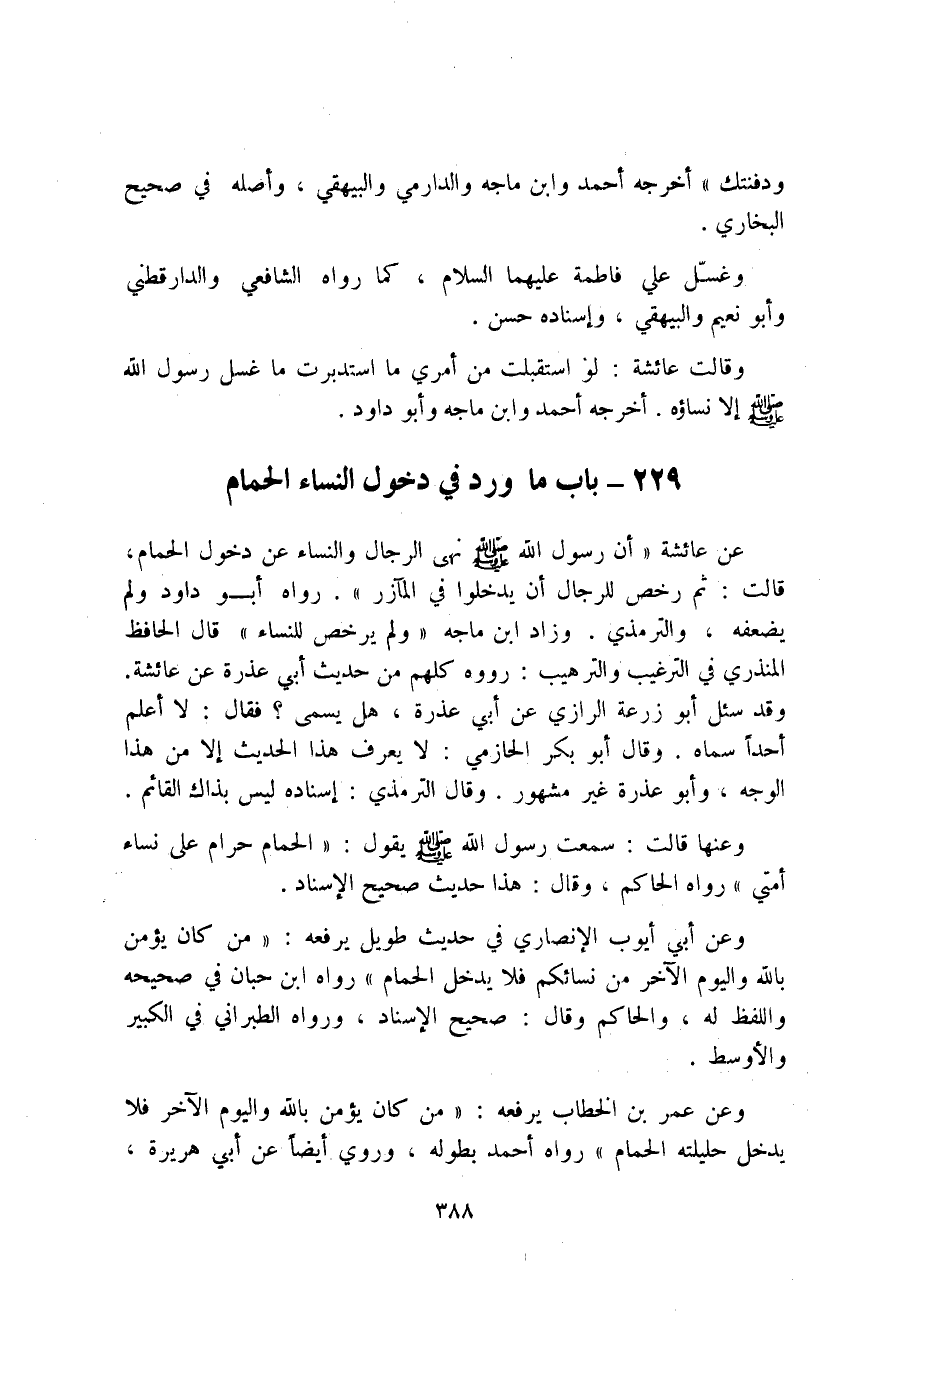 ودفنتك » أخرجه أحمد وابن ماجه والدارمي والبيهقي ، وأصله في صحيح
البخاري .
وغسّل علي فاطمة عليهما السلام ، كما رواه الشافعي والدارقطني
وأبو نعيم والبيهقي ، وإسناده حسن .
وقالت عائشة : لو استقبلت من أمري ما استدبرت ما غسل رسول الله
ﷺ إلا نساؤه . أخرجه أحمد وابن ماجه وأبو داود .
٢٢٩ – باب ما ورد في دخول النساء الحمام
عن عائشة « أن رسول الله ﷺ نهى الرجال والنساء عن دخول الحمام،
قالت : ثم رخص للرجال أن يدخلوا في المآزر » . رواه أبــو داود ولم
يضعفه ، والترمذي . وزاد ابن ماجه « ولم يرخص للنساء » قال الحافظ
المنذري في الترغيب والترهيب : رووه كلهم من حديث أبي عذرة عن عائشة.
وقد سئل أبو زرعة الرازي عن أبي عذرة ، هل يسمى ؟ فقال : لا أعلم
أحداً سماه . وقال أبو بكر الحازمي : لا يعرف هذا الحديث إلا من هذا
الوجه ، وأبو عذرة غير مشهور . وقال الترمذي : إسناده ليس بذاك القائم .
وعنها قالت : سمعت رسول الله ﷺ يقول : « الحمام حرام على نساء
أمتي » رواه الحاكم ، وقال : هذا حديث صحيح الإسناد .
وعن أبي أيوب الإنصاري في حديث طويل يرفعه : « من كان يؤمن
بالله واليوم الآخر من نسائكم فلا يدخل الحمام » رواه ابن حبان في صحيحه
واللفظ له ، والحاكم وقال : صحيح الإسناد ، ورواه الطبراني في الكبير
والأوسط .
وعن عمر بن الخطاب يرفعه : « من كان يؤمن بالله واليوم الآخر فلا
يدخل حليلته الحمام » رواه أحمد بطوله ، وروي أيضاً عن أبي هريرة ،
٣٨٨